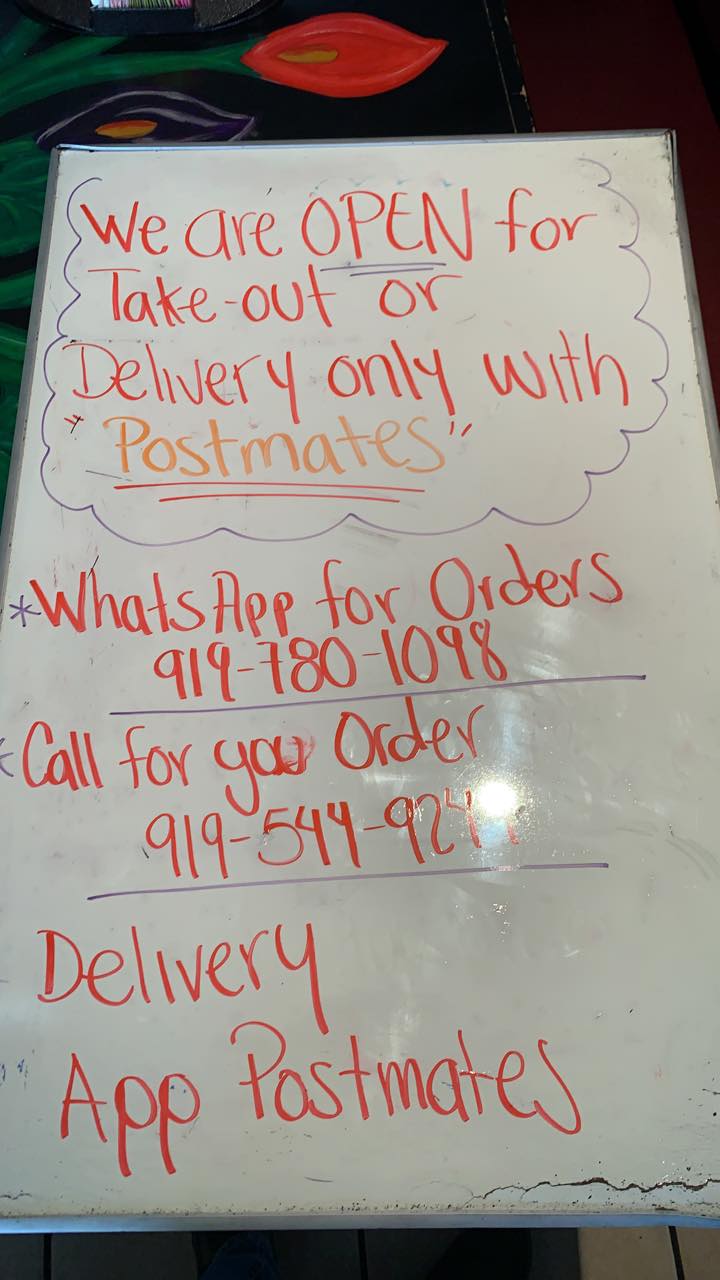 We are OPEN for
Take-out or
Delivery only with
"Postmates"
*WhatsApp for Orders
919-780-1098
*Call for you Order
Delivery
App Postmates